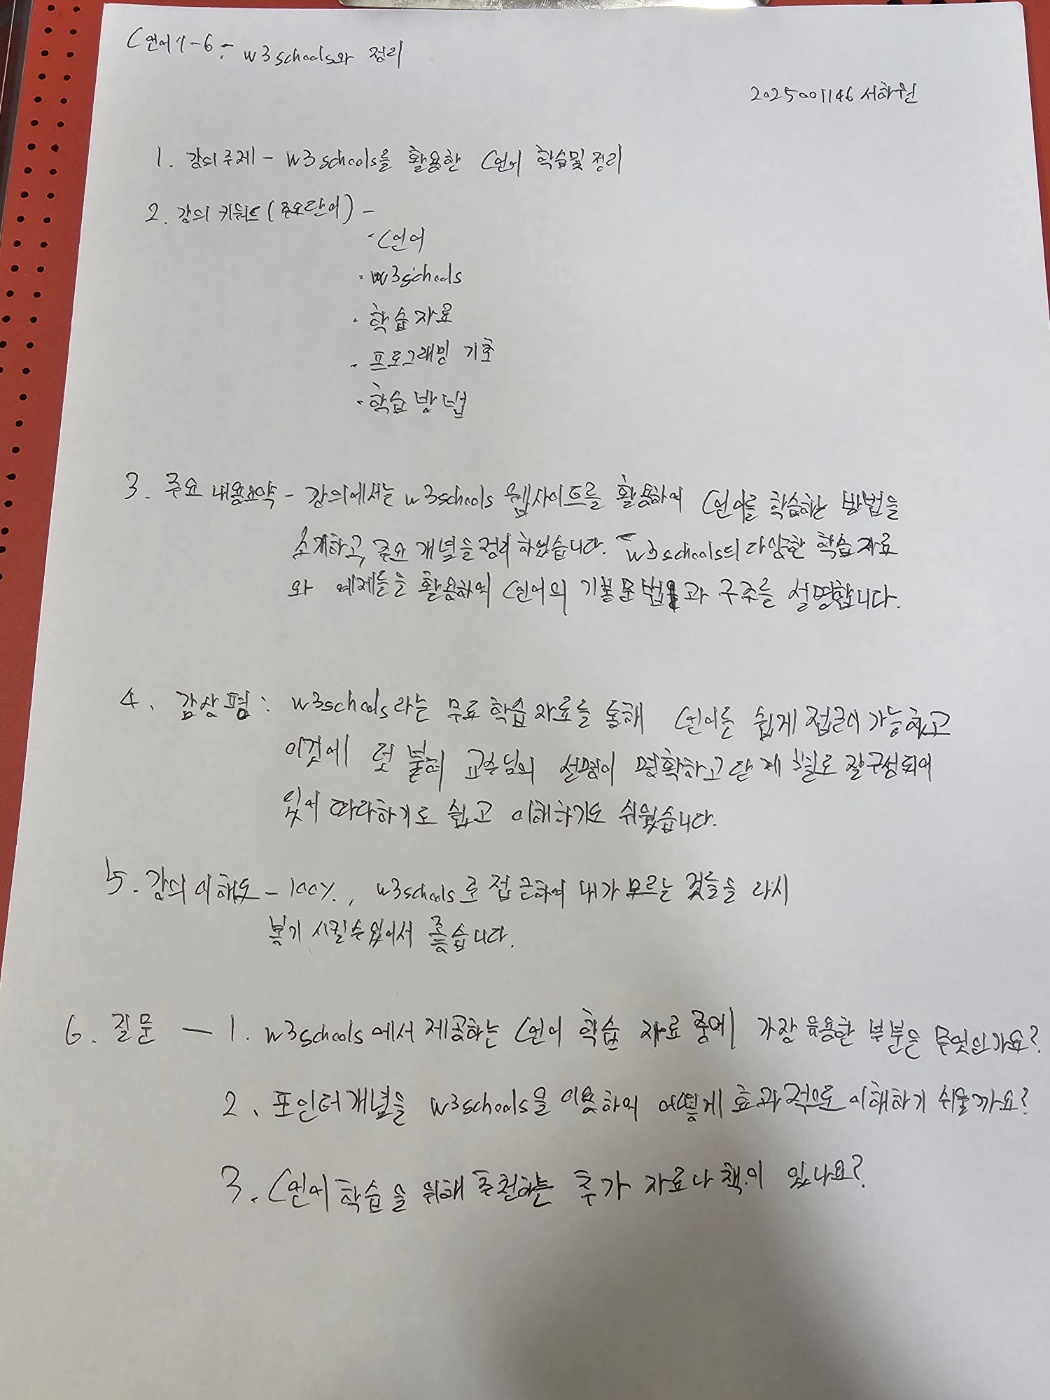 C언어 1-6 : w3schools와 정리
2025001146 서하원
1. 강의 주제 - w3schools를 활용한 C언어 학습및 정리
2. 강의 키워드 (주요단어) -
· C언어
· w3schools
· 학습 자료
· 프로그래밍 기초
· 학습 방법
3. 주요 내용요약 - 강의에서는 w3schools 웹사이트를 활용하여 C언어를 학습하는 방법을
소개하고 주요 개념을 정리 하였습니다. w3schools의 다양한 학습 자료
와 예제들을 활용하여 C언어의 기본 문법과 구조를 설명합니다.
4. 감상평 : w3schools 라는 무료 학습 자료를 통해 C언어를 쉽게 접근이 가능하고
이것에 덧 붙혀 교수님의 설명이 명확하고 단계 별로 잘 구성되어
있어 따라하기도 쉽고 이해하기도 쉬웠습니다.
5. 강의 이해도 - 100%, w3schools로 접근하여 내가 모르는 것들을 다시
복기 시킬수있어서 좋습니다.
6. 질문 - 1. w3schools에서 제공하는 C언어 학습 자료 중에 가장 유용한 부분은 무엇인가요?
2. 포인터 개념을 w3schools을 이용하여 어떻게 효과적으로 이해하기 쉬울까요?
3. C언어 학습을 위해 추천하는 추가 자료나 책이 있나요?